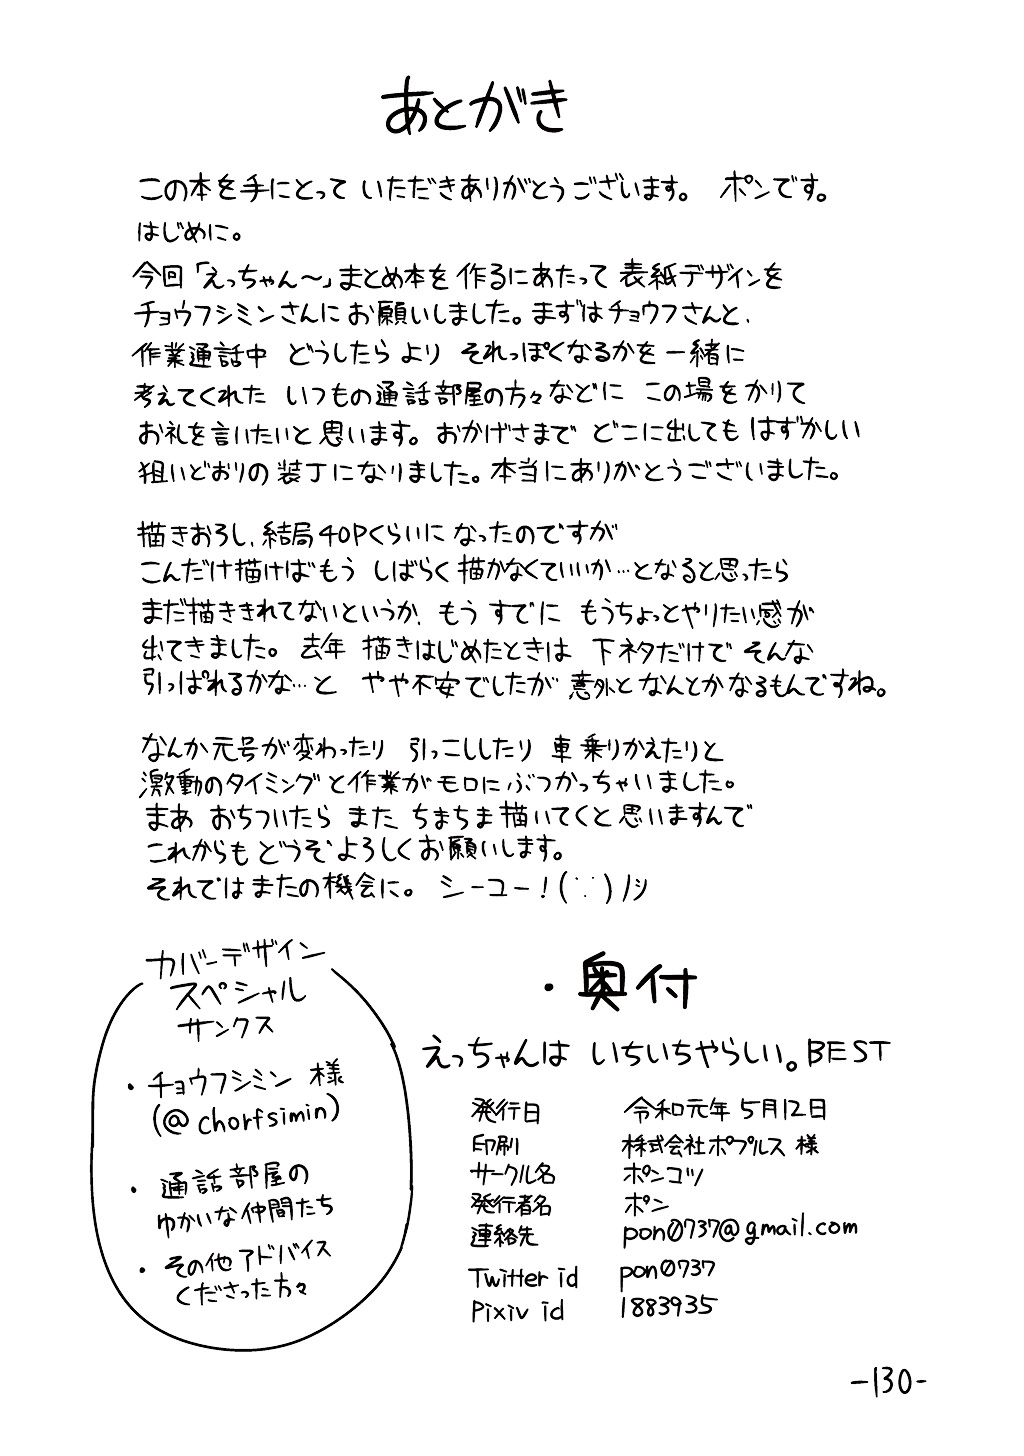 あとがき
この本を手にとって いただきありがとうございます。 ポンです。
はじめに。
今回「えっちゃん〜」まとめ本を 作るにあたって 表紙デザインを
チョウフシミンさんに お願いしました。まずはチョウフさんと、
作業通話中 どうしたら より それっぽくなるかを 一緒に
考えてくれた いつもの通話部屋の方々などに この場をかりて
お礼を言いたいと思います。おかげさまで どこに出しても はずかしい
狙いどおりの装丁になりました。本当にありがとうございました。
描きおろし、結局40Pくらいに なったのですが
こんだけ描けばもう しばらく描かなくていいか…となると思ったら
まだ描ききれてないというか、もう すでに もうちょっとやりたい感が
出てきました。 去年 描きはじめたときは 下ネタだけで そんな
引っぱれるかな…と やや不安でしたが 意外となんとかなるもんですね。
なんか元号が変わったり 引っこししたり 車乗りかえたりと
激動のタイミングと作業がモロにぶつかっちゃいました。
まあ おちついたら また、ちまちま描いてくと思いますんで
これからもどうぞよろしくお願いします。
それではまたの機会に。 シーユー!(∵)ノシ
カバーデザイン
スペシャル
サンクス
・チョウフシミン 様
(@chorfsimin)
・通話部屋の
ゆかいな仲間たち
・その他アドバイス
くださった方々
・奥付
えっちゃんは いちいちやらしい。BEST
発行日 令和元年5月12日
印刷 株式会社ポプルス 様
サークル名 ポンコツ
発行者名 ポン
連絡先 pon0737@gmail.com
Twitter id pon0737
Pixiv id 1883935
-130-